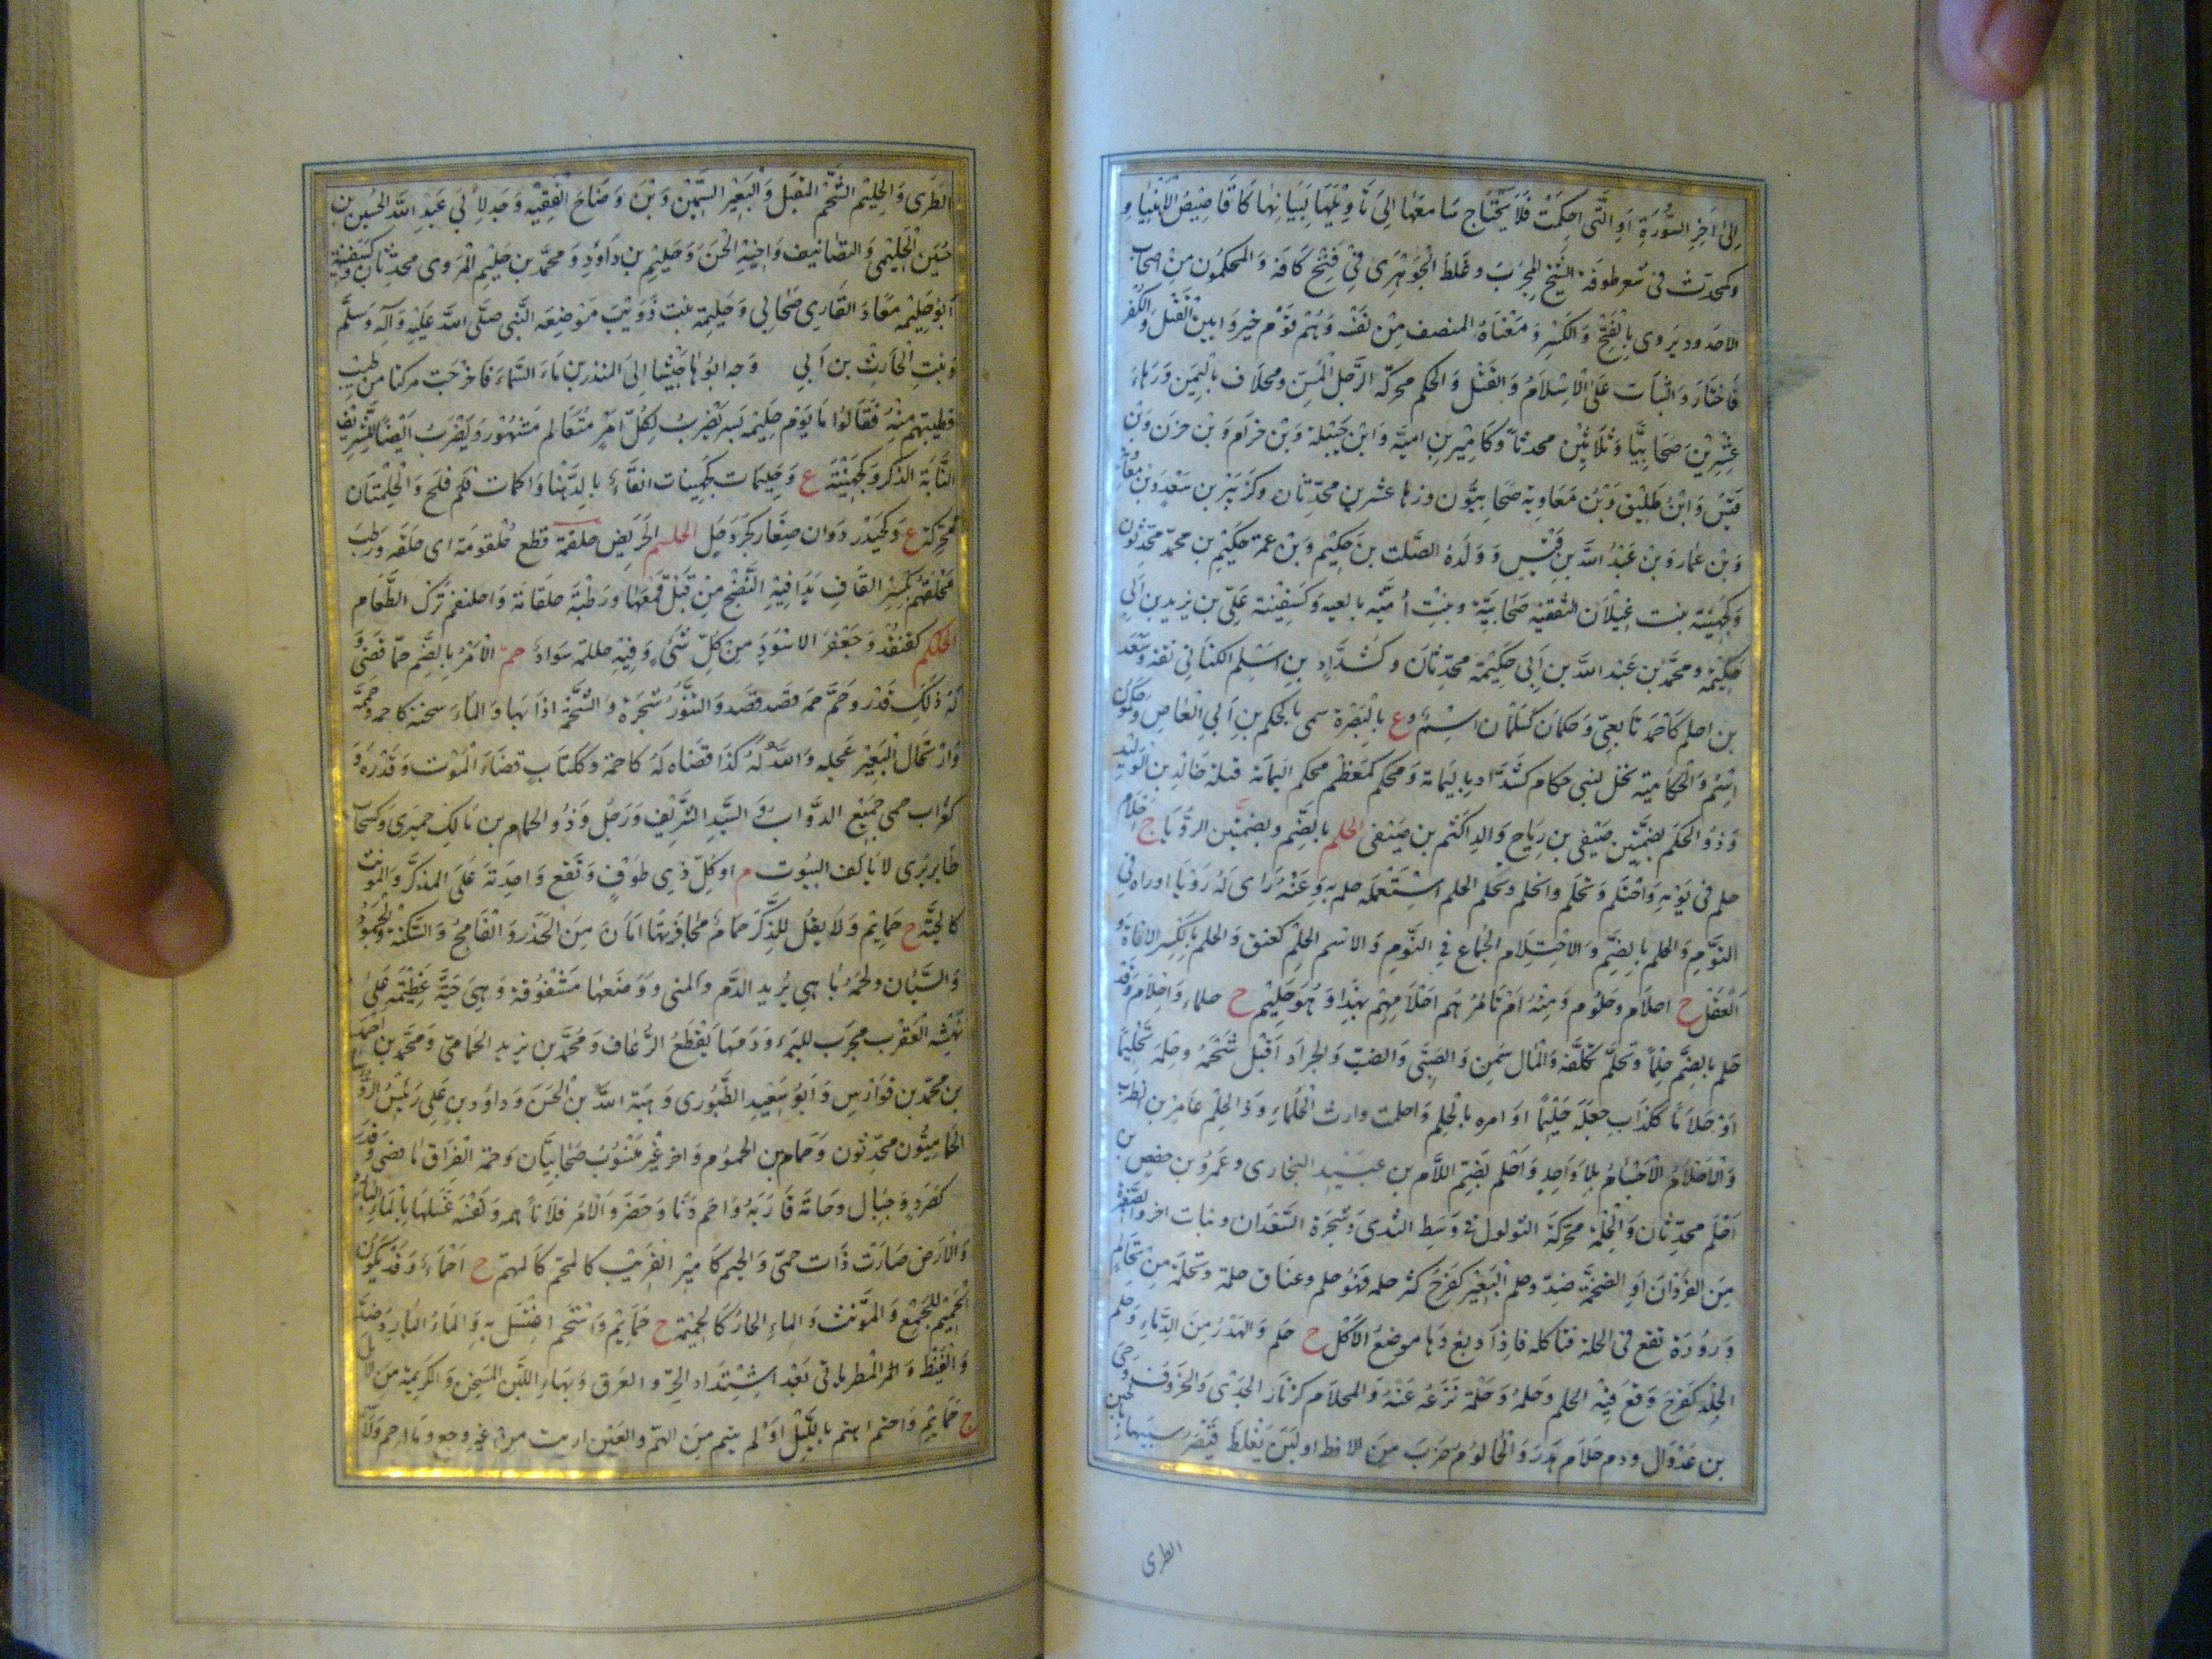 إلى اخر السورة او التى احكمت فلا يحتاج سامعها الى تاويلها لبيانها كاقاصيص الانبيا و
كمحدث فى شعر طرفة الشيخ المجرب وغلط الجوهرى فى فتح كافه والمحكمون من اصحاب
الاخدود يروى بالفتح والكسر ومعناه المنصف من نفسه وهم قوم خيروا بين القتل والكفر
فاختاروا الثبات على الاسلام والقتل والحكم محركة الرجل المسن ومخلاف باليمن وزهاء
عشرين صحابيا وثلاثين محدثا وكامير بن امية وابن جبلة وبن حزام وبن حزن وبن
قيس وابن طليق وبن معاوية صحابيون وزها عشرين محدثان وكزبير بن سعد وبن معاوية
وبن عمار وبن عبد الله بن قيس وولده الصلت بن حكيم وبن عمه حكيم بن محمد محدثون
وكجهينة بنت غيلان الثقفية صحابية وبنت أمية تابعيه وكسفينة على بن يزيد بن ابى
حكيمة ومحمد بن عبد الله بن ابى حكيمة محدثان وكشداد بن اسلم الكنانى نفسه وسعد
بن احكم كاحمد تابعى وحكمان كسلمان اسم وع بالبصرة سمى بالحكم بن ابى العاص وحكمون
اسم والحكامية نخل لبنى حكام كشداد باليمامة ومحكم كمعظم محكم اليمامة قتله خالد بن الوليد
وذو الحكم بضمتين صيفى بن رياح والد اكثم بن صيفى الحلم بالضم وبضمتين الرؤيا ج احلام
حلم فى نومه واحتلم وتحلم وانحلم وتحلم الحلم استعمله حلم به وعنه راى له رؤيا او راه فى
النوم والحلم بالضم والاحتلام الجماع فى النوم والاسم الحلم كعنق والحلم بالكسر الاناة و
العقل ج احلام وحلوم ومنه ام تامرهم احلامهم بهذا وهو حليم ج حلماء واحلام وقد
حلم بالضم حلما وتحلم تكلفه والمال سمن والصبى والضب والجراد اقبل شحمه وحلمه تحليما
او حلاما ككذاب جعله حليما او امره بالحلم واحلمت ولدت الحلماء وذو الحلم عامر بن الظرب
والاحلام الاجسام بلا واحد واحلم بضم اللام بن عبيد البخارى وعمرو بن حفص بن
احلم محدثان والحلمة محركة الثولول فى وسط الثدى وشجرة السعدان ونبات اخر والصغيرة
من القردان او الضخمة ضد وحلم البعير كفرح كثر حلمه فهو حلم وعناق حلمة وتحلمة من تحالم
ودودة تقع فى الجلد فتاكله فاذا دبغ وها موضع الاكل ج حلم والهدر من الدماء وحلم
الجلد كفرح وقع فيه الحلم وحلمه وحلمة نزعه عنه والحلام كزنار الجدى والخروف وحى
بن عدوان ودم حلام هدر والحالوم ضرب من الاقط او لبن يغلظ فيصير شبيها بالجبن
الطرى
الطرى والحليم الشحم المقبل والبعير السمين وبن وضاح الفقيه وجد لابى عبد الله الحسين بن
حسين الحليمى والتصانيف واخيه الحسن وحليم بن داود ومحمد بن حليم المروى محدثان وكسفينة
ابو حليمة معاذ القارى صحابى وحليمة بنت ذويب مرضعه النبى صلى الله عليه وآله وسلم
وبنت الحارث بن ابى وجه ابوها جيشا الى المنذر بن ماء السماء فاخرجت مركنا من طيب
فطيبتهم منه فقالوا ما يوم حليمة بسر يضرب لكل امر متعالم مشهور ويضرب ايضا للشريف
النابه الذكر وكجهينة ع وحليمات كجهينات انقاء بالدهنا واكمات فلج والحلمتان
محركة ع وكحيدر دوان صغار كجرول الحلسم الحريص حلقمه قطع حلقومه اى حلقه ورطب
محلقم بكسر القاف بدا فيه النضج من قبل قمعها ورطبة حلقانة واحلنقم ترك الطعام
الحلكم كقنفذ وجعفر الاسود من كل شئ وفيه حلكمة سواد حم الامر بالضم حما قضى و
له ذلك قدر وحم حمه قصد قصده والتنور سجره والشحمة اذابها والماء سخنه كاحمه وحممه
وارتحال البعير عجله والله له كذا قضاه له كاحمه وككتاب قضاء الموت وقدره و
كغراب حمى جميع الدواب والسيد الشريف ورجل وذو الحمام بن مالك حميرى وكسحاب
طاير برى لا يالف البيوت م او كل ذى طوق وتقع واحدته على المذكر والمونث
كالحية ج حمايم ولا يقل للذكر حمام مجاورتها امان من الخدر والفالج والسكتة والجمود
والسبات ولحمه باهى يزيد الدم والمنى ووضعها مشقوقة وهى حية على
نهشه العقرب مجرب للبرء ودمها يقطع الرعاف ومحمد بن يزيد الحمامى ومحمد بن احمد
بن محمد بن فوارس وابو سعيد الطيورى وهبة الله بن الحسن وداود بن على رئيس الرؤسا
الحماميون محدثون وحمام بن الجموح واخر غير منسوب صحابيان وحمة الفراق ما قضى وقدر
كصرد وجبال وحامه قاربه واحم دنا وحضر والامر فلانا اهمه ونفسه غسلها بالماء البارد
والارض صارت ذات حمى والحميم كامير القريب كالمحم كالمهم ج احماء وقد يكون
الحميم للجمع والمونث والماء الحار كالحميمة ج حمايم واستحم اغتسل به والماء البارد ضد
والقيظ والمطر ياتى بعد اشتداد الحر والعرق وبهاء اللبن المسخن والكريمة من الابل
ج حمايم واحتم اهتم بالليل او لم ينم من الهم والعين ارقت من غير وجع وماله حم ولا